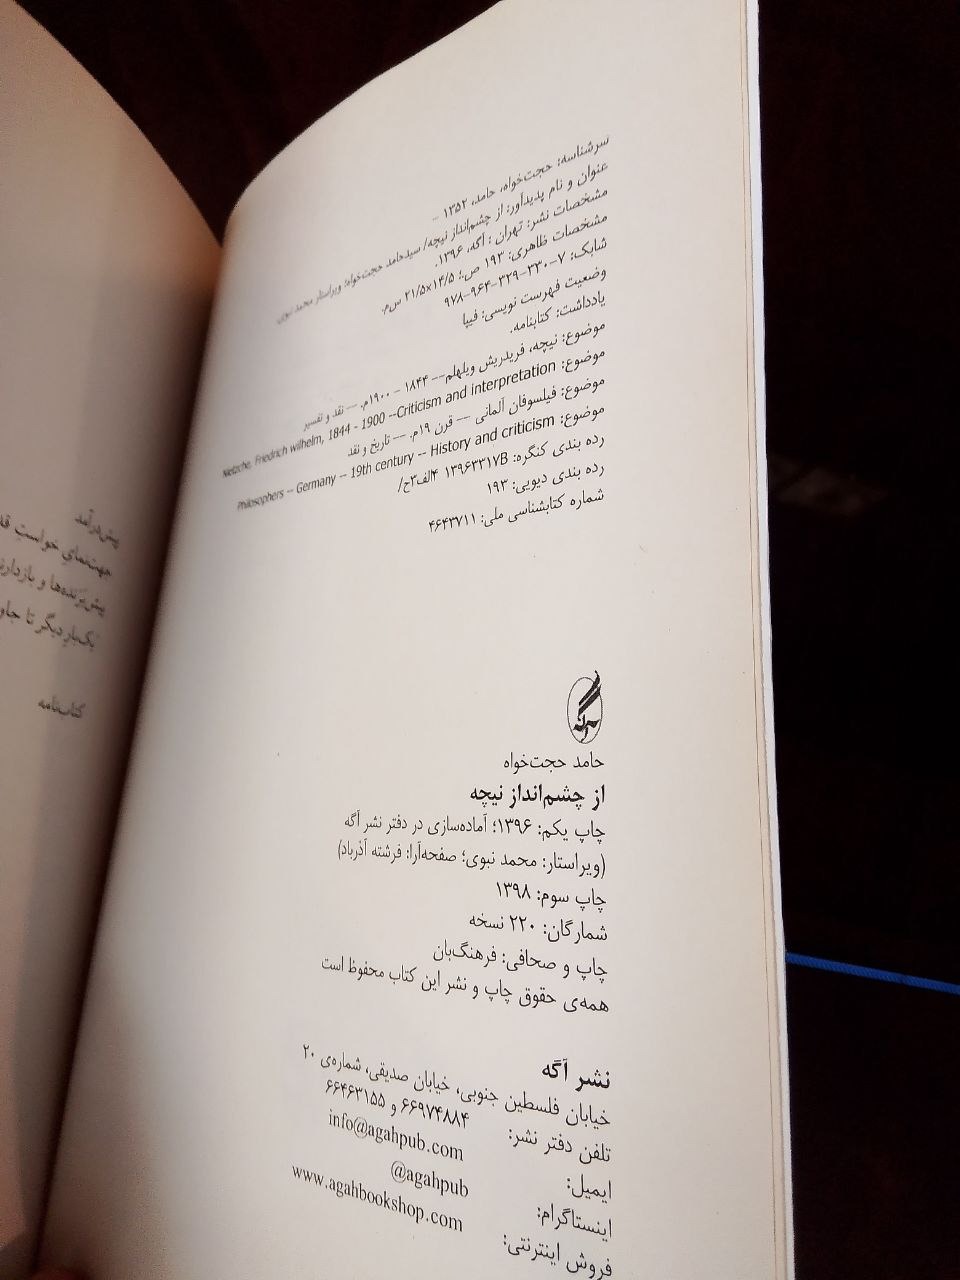 سرشناسه: حجت‌خواه، حامد، ۱۳۵۲ -
عنوان و نام پدیدآور: از چشم‌انداز نیچه/ سیدحامد حجت‌خواه؛ ویراستار محمد نبوی.
مشخصات نشر: تهران : آگه، ۱۳۹۶.
مشخصات ظاهری: ۱۹۳ ص؛ ۱۴/۵×۲۱/۵ س‌م.
شابک: ۷-۳۳۰-۳۲۹-۹۶۴-۹۷۸
وضعیت فهرست نویسی: فیپا
یادداشت: کتابنامه.
موضوع: نیچه، فریدریش ویلهلم-- ۱۸۴۴ - ۱۹۰۰م. -- نقد و تفسیر
موضوع: Nietzche, Friedrich wilhelm, 1844 - 1900 --Criticism and interpretation
موضوع: فیلسوفان آلمانی -- قرن ۱۹م. -- تاریخ و نقد
موضوع: Philosophers -- Germany -- 19th century -- History and criticism
رده بندی کنگره: B۳۳۱۷ ۱۳۹۶ ۴الف۳ح/
رده بندی دیویی: ۱۹۳
شماره کتابشناسی ملی: ۴۶۴۳۷۱۱
آگه
حامد حجت‌خواه
از چشم‌انداز نیچه
چاپ یکم: ۱۳۹۶؛ آماده‌سازی در دفتر نشر آگه
(ویراستار: محمد نبوی؛ صفحه‌آرا: فرشته آذرباد)
چاپ سوم: ۱۳۹۸
شمارگان: ۲۲۰ نسخه
چاپ و صحافی: فرهنگ‌بان
همه‌ی حقوق چاپ و نشر این کتاب محفوظ است
نشر آگه
خیابان فلسطین جنوبی، خیابان صدیقی، شماره‌ی ۲۰
تلفن دفتر نشر: ۶۶۹۷۴۸۸۴ و ۶۶۴۶۳۱۵۵
ایمیل: info@agahpub.com
اینستاگرام: @agahpub
فروش اینترنتی: www.agahbookshop.com
پیش‌درآمد
جهت‌نمای خواستِ
پیش‌برنده‌ها و
یک‌بار دیگر تا
کتاب‌نامه